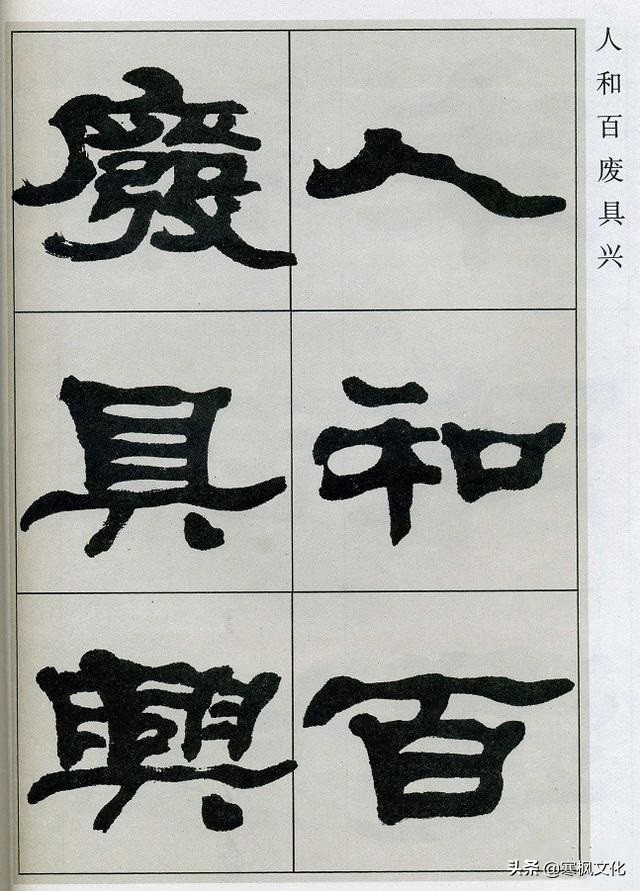 人和百废具兴
人和百
廢具興
头条 @寒枫文化